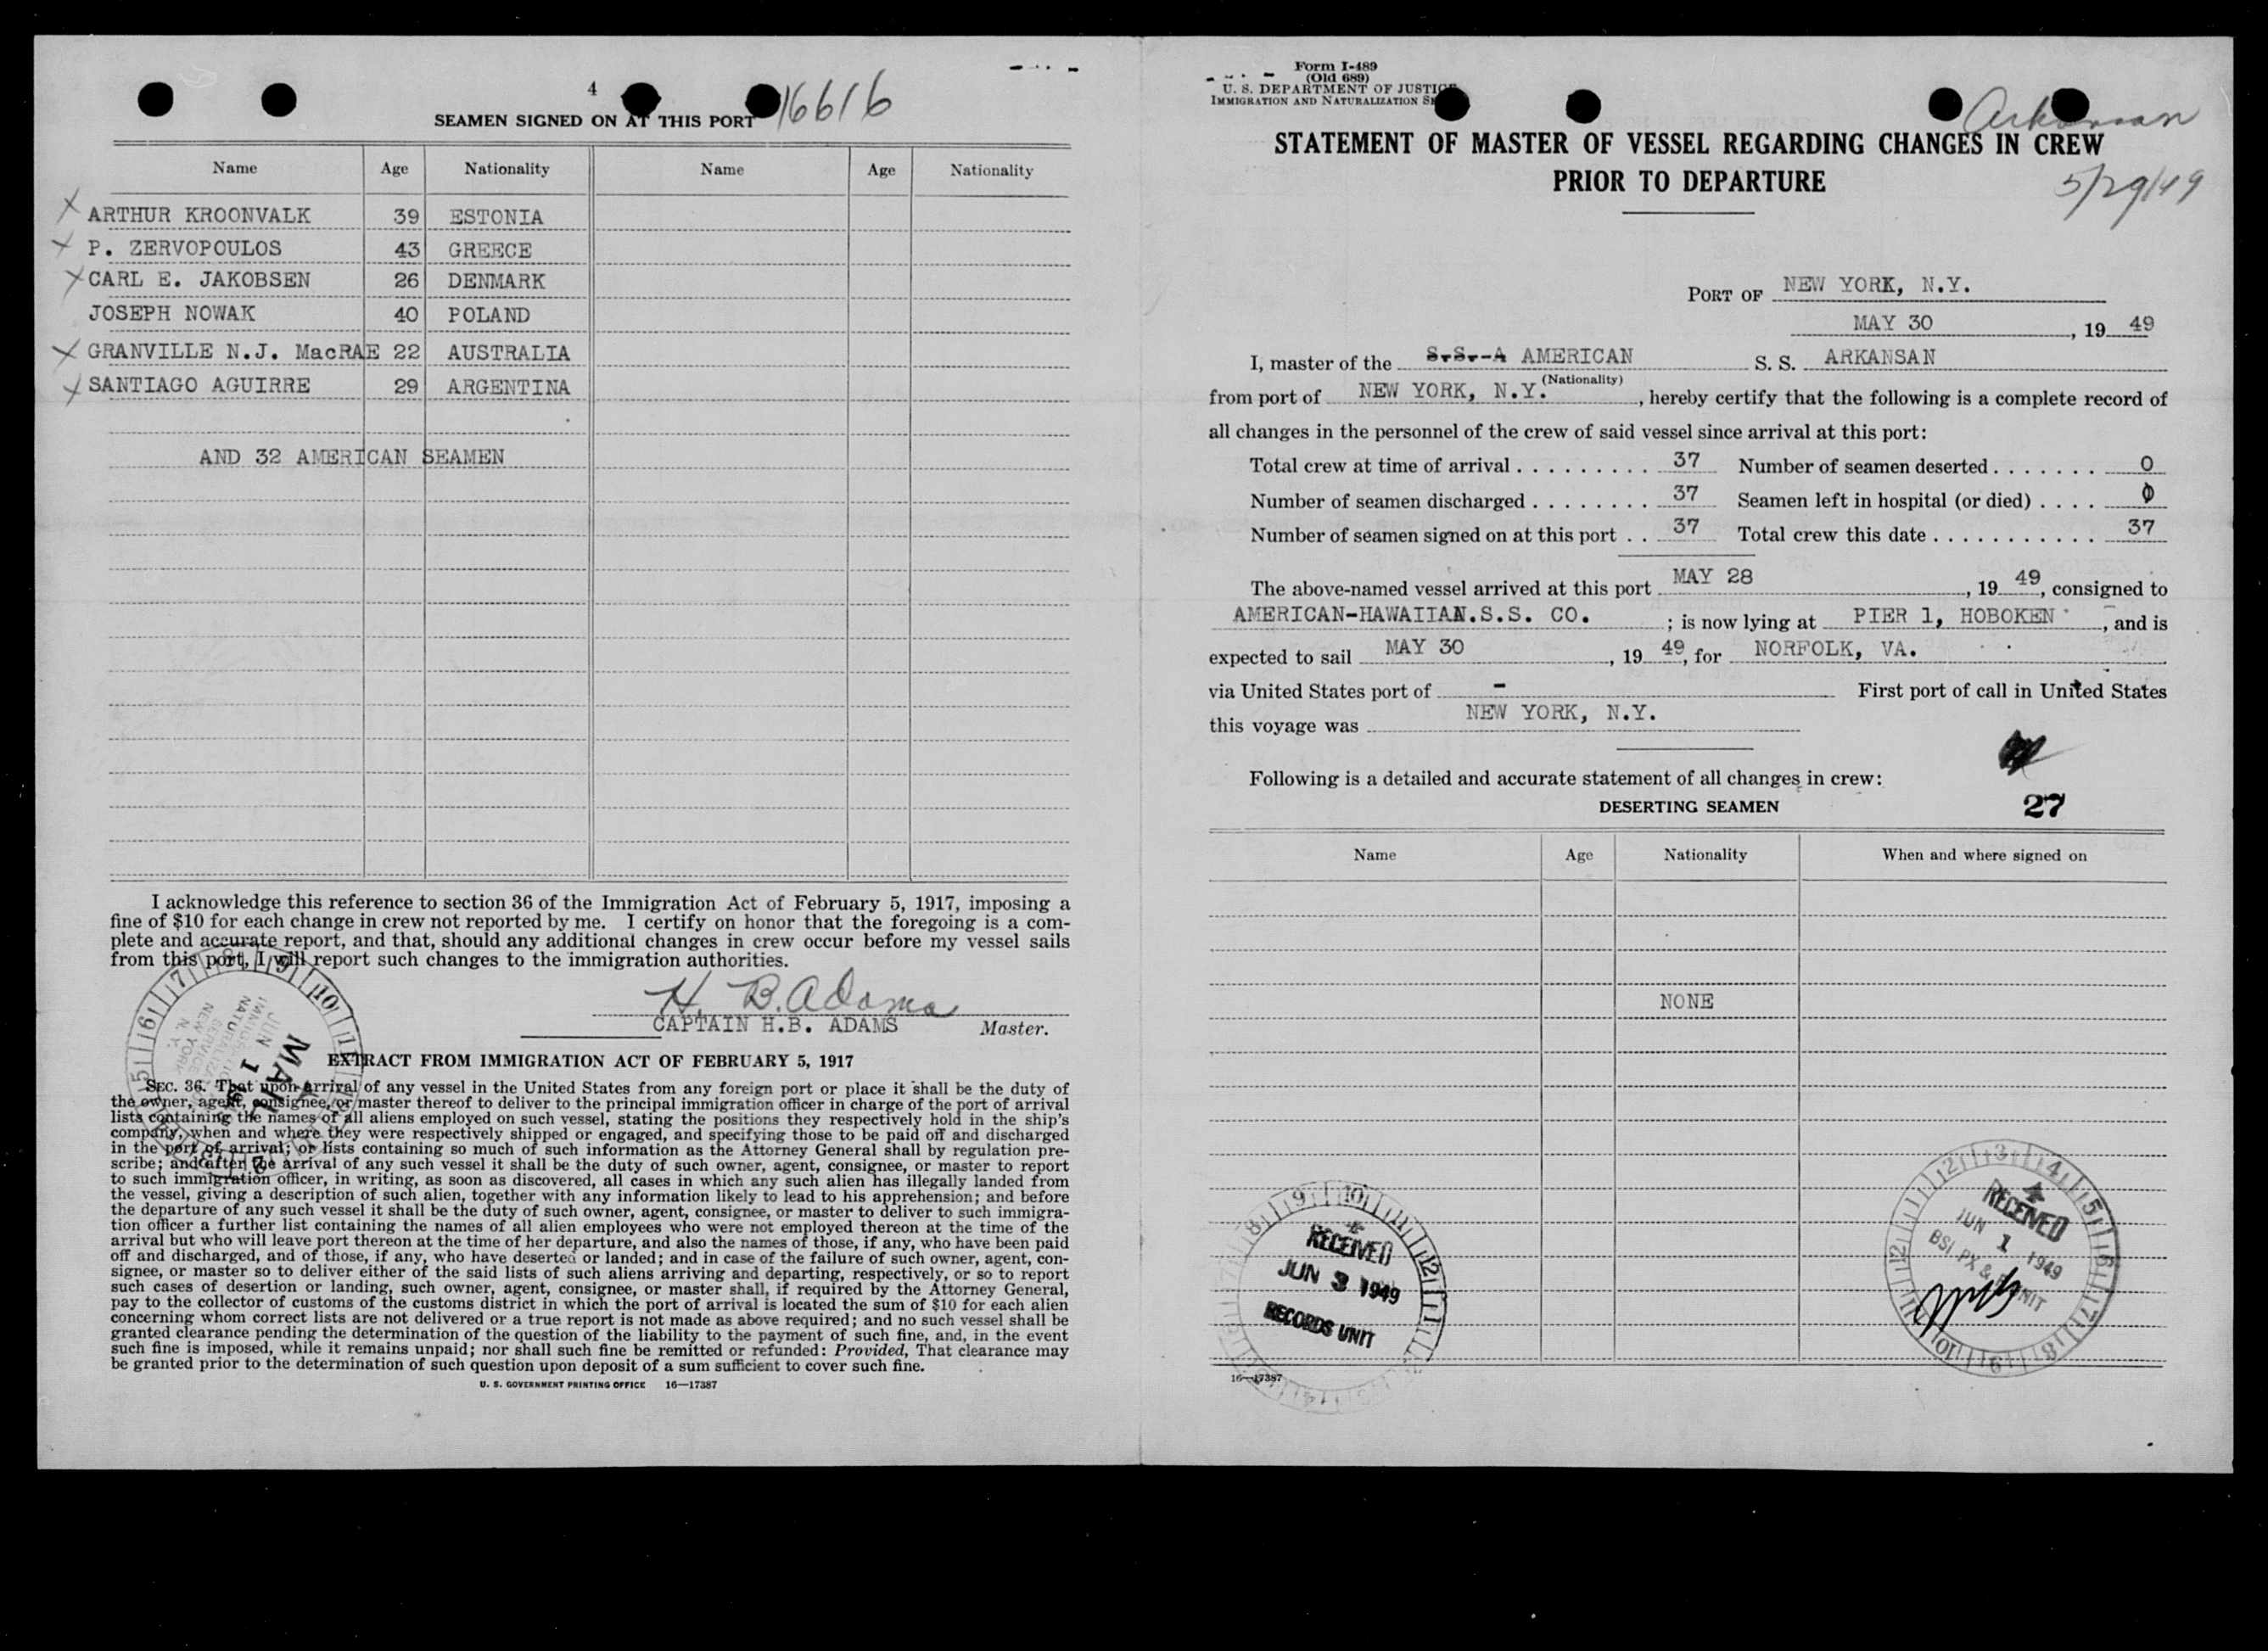 4
16616
SEAMEN SIGNED ON AT THIS PORT
Name Age Nationality Name Age Nationality
X ARTHUR KROONVALK 39 ESTONIA
X P. ZERVOPOULOS 43 GREECE
X CARL E. JAKOBSEN 26 DENMARK
JOSEPH NOWAK 40 POLAND
X GRANVILLE N.J. MacRAE 22 AUSTRALIA
X SANTIAGO AGUIRRE 29 ARGENTINA
AND 32 AMERICAN SEAMEN
I acknowledge this reference to section 36 of the Immigration Act of February 5, 1917, imposing a
fine of $10 for each change in crew not reported by me. I certify on honor that the foregoing is a com-
plete and accurate report, and that, should any additional changes in crew occur before my vessel sails
from this port, I will report such changes to the immigration authorities.
H. B. Adams
CAPTAIN H.B. ADAMS Master.
EXTRACT FROM IMMIGRATION ACT OF FEBRUARY 5, 1917
SEC. 36. That upon arrival of any vessel in the United States from any foreign port or place it shall be the duty of
the owner, agent, consignee, or master thereof to deliver to the principal immigration officer in charge of the port of arrival
lists containing the names of all aliens employed on such vessel, stating the positions they respectively hold in the ship's
company, when and where they were respectively shipped or engaged, and specifying those to be paid off and discharged
in the port of arrival; or lists containing so much of such information as the Attorney General shall by regulation pre-
scribe; and after the arrival of any such vessel it shall be the duty of such owner, agent, consignee, or master to report
to such immigration officer, in writing, as soon as discovered, all cases in which any such alien has illegally landed from
the vessel, giving a description of such alien, together with any information likely to lead to his apprehension; and before
the departure of any such vessel it shall be the duty of such owner, agent, consignee, or master to deliver to such immigra-
tion officer a further list containing the names of all alien employees who were not employed thereon at the time of the
arrival but who will leave port thereon at the time of her departure, and also the names of those, if any, who have been paid
off and discharged, and of those, if any, who have deserted or landed; and in case of the failure of such owner, agent, con-
signee, or master so to deliver either of the said lists of such aliens arriving and departing, respectively, or so to report
such cases of desertion or landing, such owner, agent, consignee, or master shall, if required by the Attorney General,
pay to the collector of customs of the customs district in which the port of arrival is located the sum of $10 for each alien
concerning whom correct lists are not delivered or a true report is not made as above required; and no such vessel shall be
granted clearance pending the determination of the question of the liability to the payment of such fine, and, in the event
such fine is imposed, while it remains unpaid; nor shall such fine be remitted or refunded: Provided, That clearance may
be granted prior to the determination of such question upon deposit of a sum sufficient to cover such fine.
U. S. GOVERNMENT PRINTING OFFICE 16—17387
Form I-489
(Old 689)
U. S. DEPARTMENT OF JUSTICE
IMMIGRATION AND NATURALIZATION
Arkansan
STATEMENT OF MASTER OF VESSEL REGARDING CHANGES IN CREW
PRIOR TO DEPARTURE
5/29/49
PORT OF NEW YORK, N.Y.
MAY 30, 19 49
I, master of the S.S. A AMERICAN S. S. ARKANSAN
(Nationality)
from port of NEW YORK, N.Y., hereby certify that the following is a complete record of
all changes in the personnel of the crew of said vessel since arrival at this port:
Total crew at time of arrival . . . . . . . . . 37 Number of seamen deserted . . . . . . . 0
Number of seamen discharged . . . . . . . . 37 Seamen left in hospital (or died) . . . . 0
Number of seamen signed on at this port . . 37 Total crew this date . . . . . . . . . . . 37
The above-named vessel arrived at this port MAY 28, 19 49, consigned to
AMERICAN-HAWAIIAN.S.S. CO. ; is now lying at PIER 1, HOBOKEN, and is
expected to sail MAY 30, 19 49, for NORFOLK, VA.
via United States port of - First port of call in United States
this voyage was NEW YORK, N.Y.
Following is a detailed and accurate statement of all changes in crew:
DESERTING SEAMEN
27
Name Age Nationality When and where signed on
NONE
RECEIVED
JUN 3 1949
RECORDS UNIT
RECEIVED
JUN 1 1949
BSI PX & UNIT
16—17387